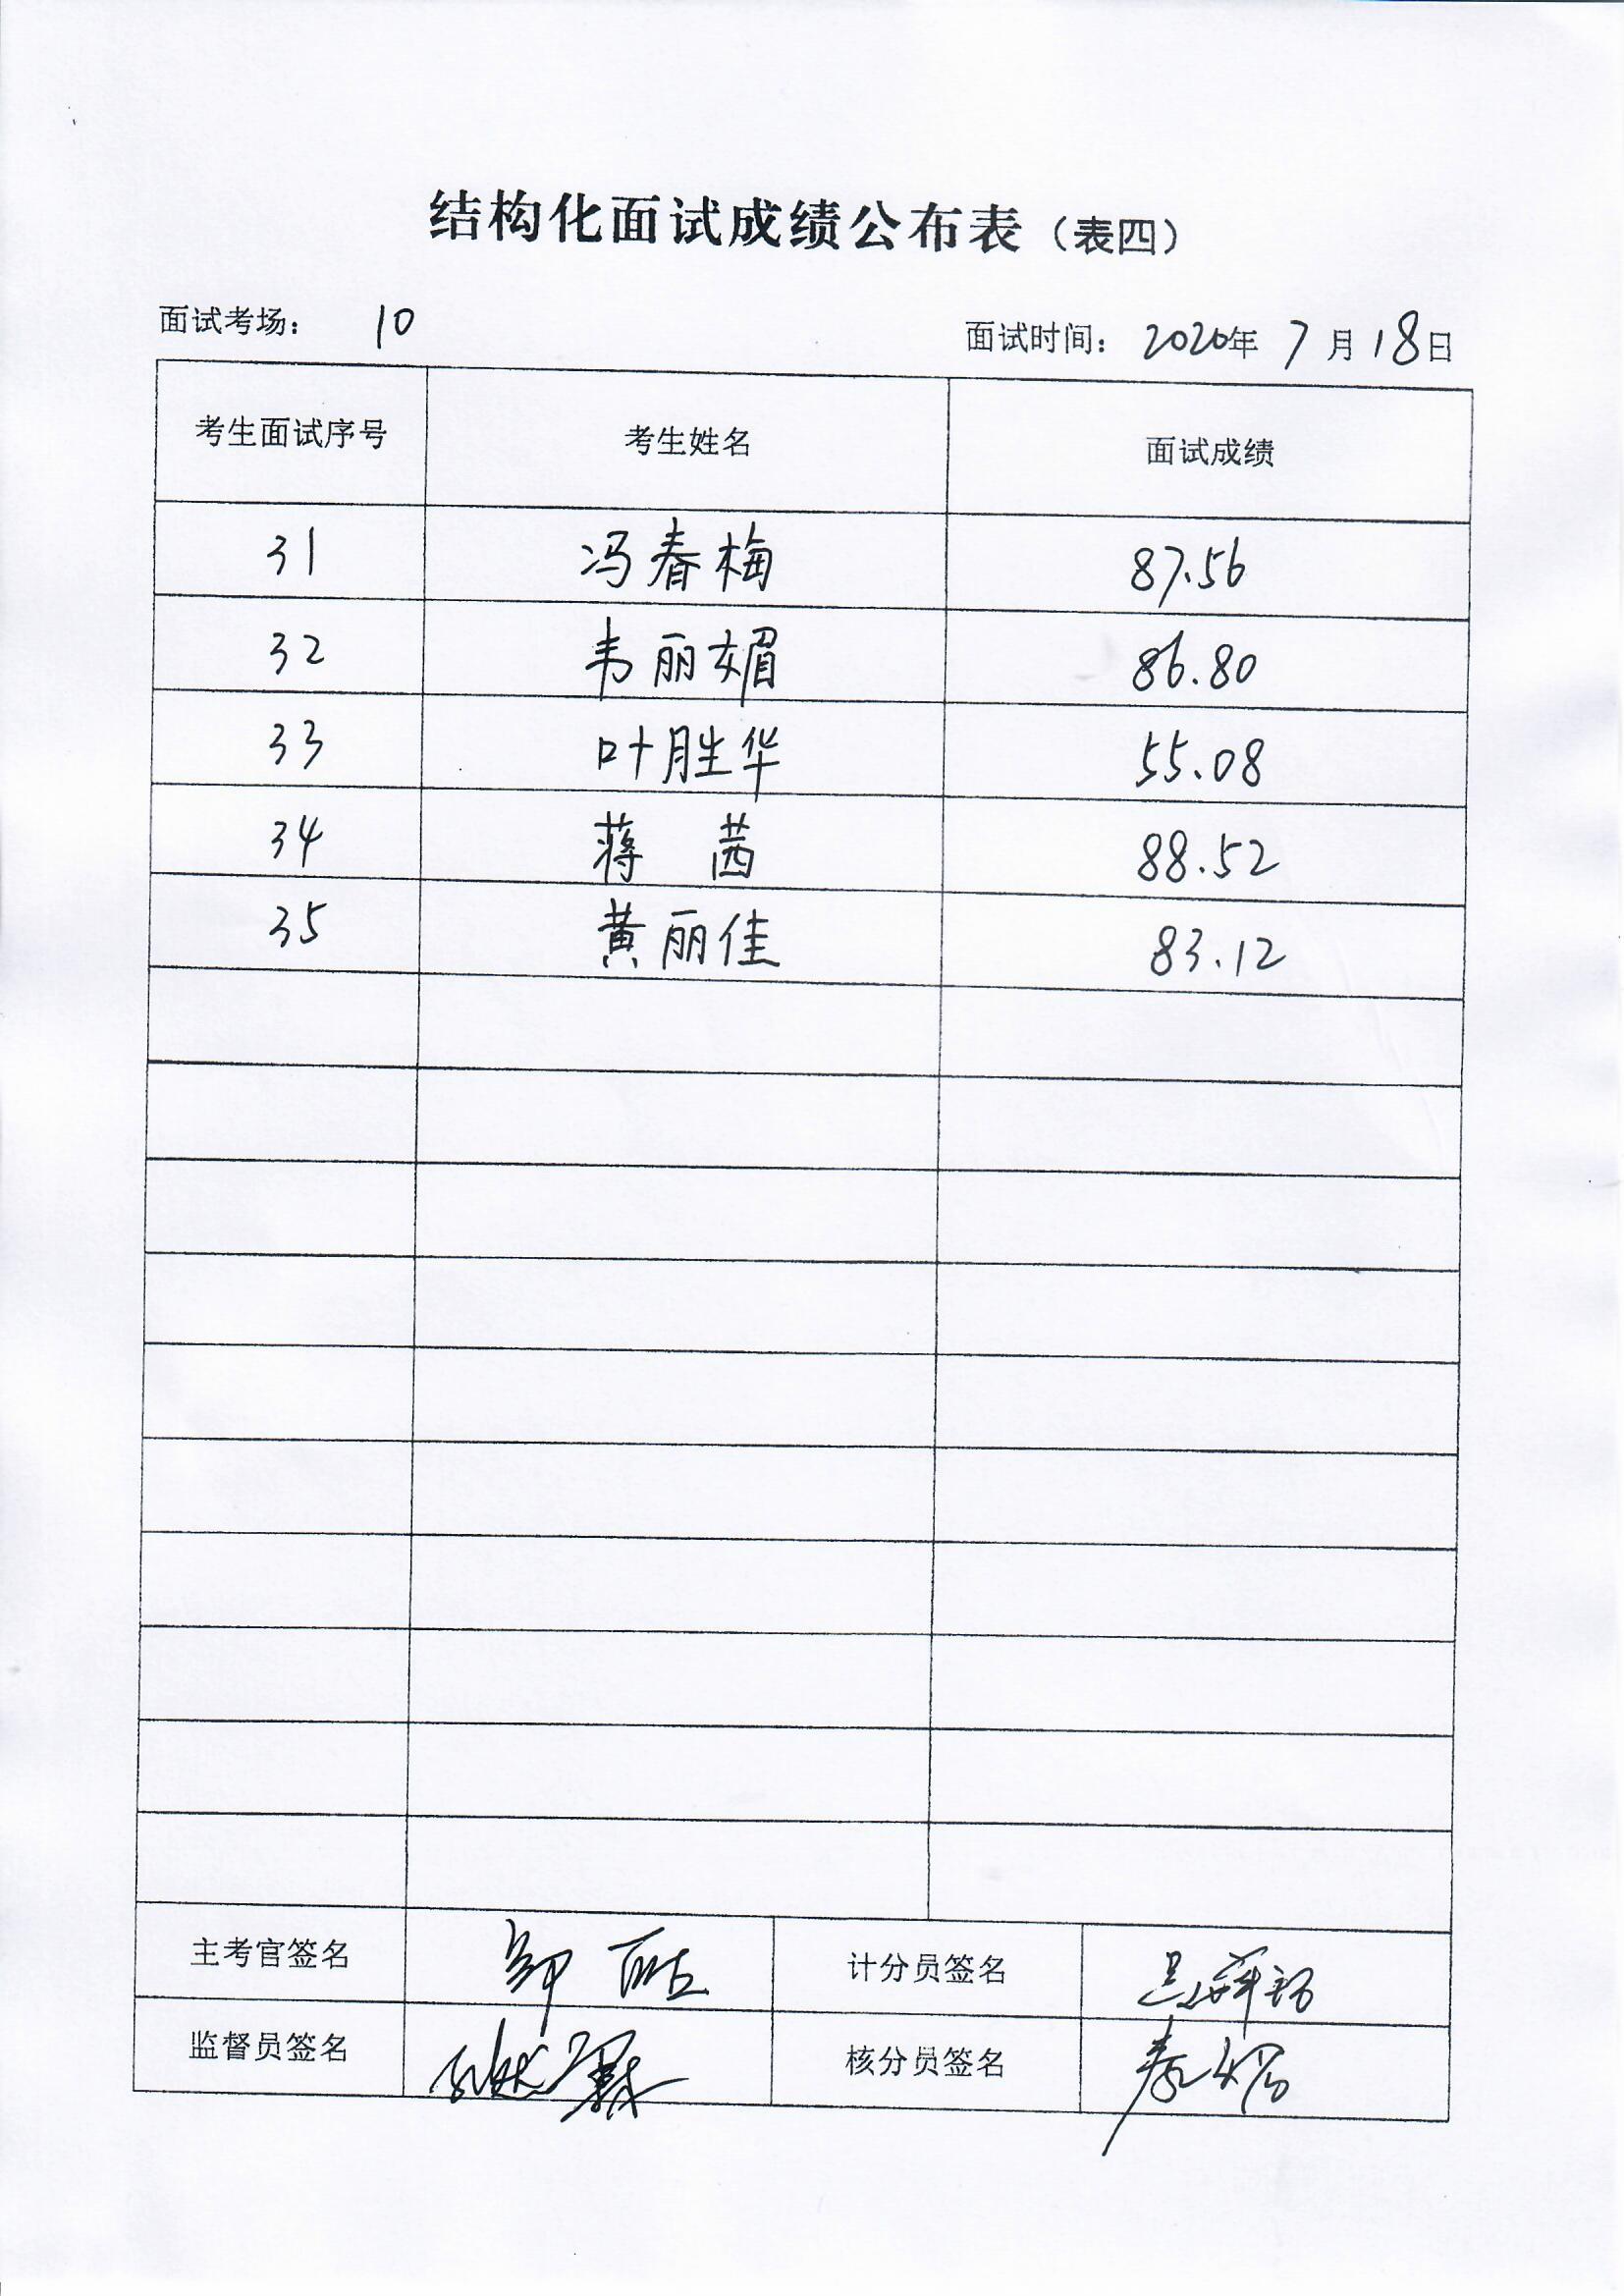 结构化面试成绩公布表（表四）
面试考场： 10 面试时间： 2020年 7月18日
考生面试序号 考生姓名 面试成绩
31 冯春梅 87.56
32 韦丽媚 86.80
33 叶胜华 55.08
34 蒋茜 88.52
35 黄丽佳 83.12
主考官签名 计分员签名
监督员签名 核分员签名